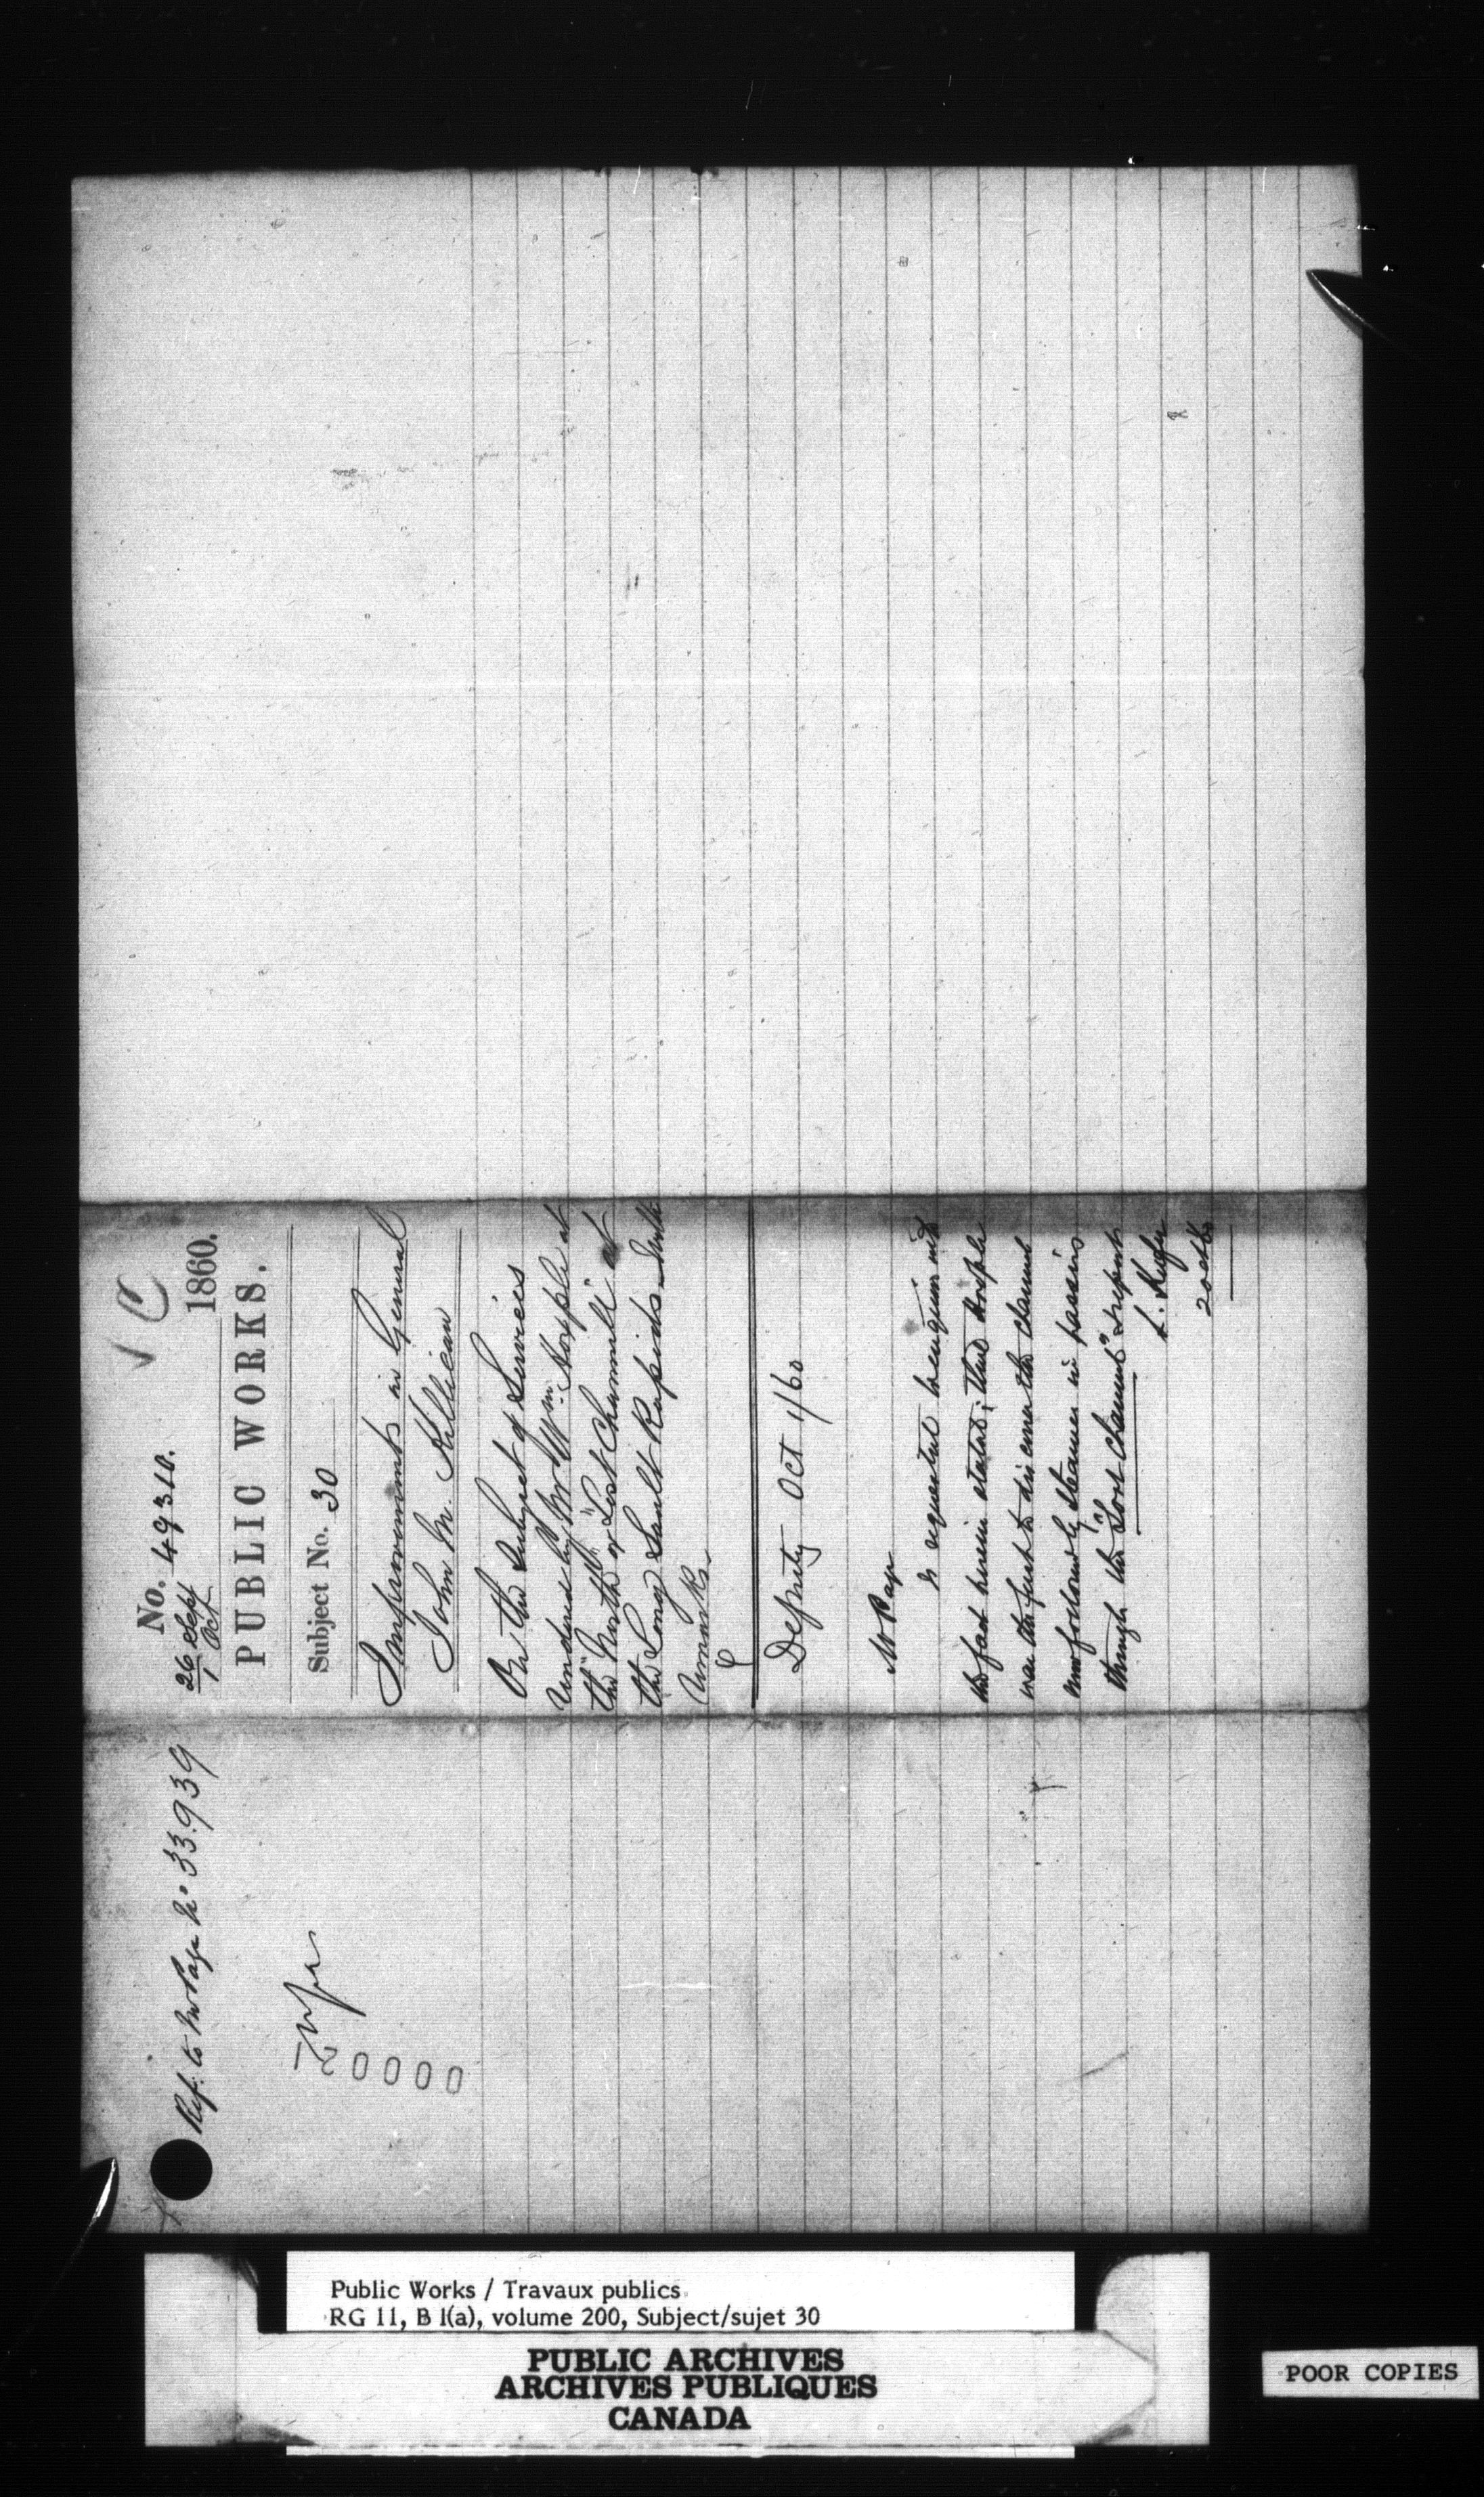 Ref: to Mr Page No 33.939
20000
√ C
No. 49310.
26 Sept
1 Oct
1860.
PUBLIC WORKS.
Subject No. 30
Improvements in General
John M. Killican
On the Subject of Services
rendered by Mr Wm. Hopple at
the North or "Lost Channell" at
the Long Sault Rapids with
remarks
Deputy Oct 1/60
Mr Page
is requested to enquire into
the fact herein stated; that Hopple
was the first to discover the channel
now followed by Steamer in passing
through the "Lost Channel" & report
20 Oct 60
Public Works / Travaux publics
RG 11, B 1(a), volume 200, Subject/sujet 30
PUBLIC ARCHIVES
ARCHIVES PUBLIQUES
CANADA
POOR COPIES